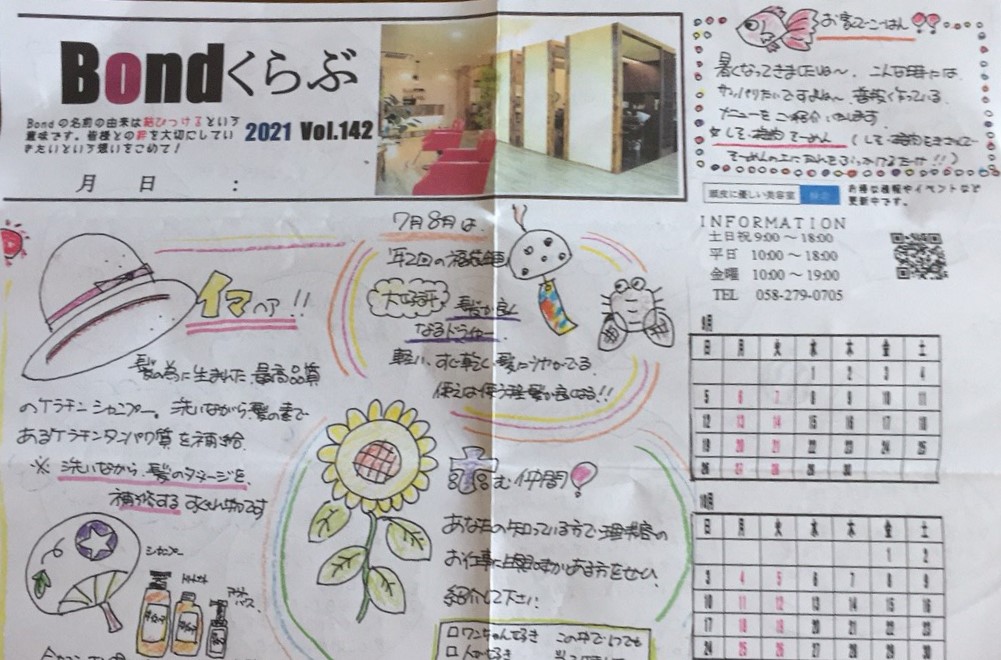 Bondくらぶ
Bondの名前の由来は結びつけるという
意味です。皆様との絆を大切にしてい
きたいという想いをこめて!
2021 Vol.142
月 日 :
お家でごはん
暑くなってきましたね〜。こんな時には
サッパリたいですよね〜。
メニューをご紹介します
頭皮に優しい美容室 検索
お得な情報やイベントなど
更新中です。
INFORMATION
土日祝 9:00 〜 18:00
平日 10:00 〜 18:00
金曜 10:00 〜 19:00
TEL 058-279-0705
イマ !!
髪の為に生まれた最高品質
のケラチンシャンプー。洗いながら髪の素で
あるケラチンタンパク質を補給
※ 洗いながら、髪のダメージを
補修する すぐれ物です
シャンプー
7月8月は、
年2回の福袋企画
大好評 髪が良く
なるドライヤー
軽い、すぐ乾く、髪にツヤがでる
使えば使う程髪が良くなる!!
む仲間
あなたの知っている方で理美容の
お仕事に興味がある方をぜひ、
紹介して下さい
ワンちゃん好き この中で1つでも
人が好き
9月
日 月 火 水 木 金 土
1 2 3 4
5 6 7 8 9 10 11
12 13 14 15 16 17 18
19 20 21 22 23 24 25
26 27 28 29 30
10月
日 月 火 水 木 金 土
1 2
3 4 5 6 7 8 9
10 11 12 13 14 15 16
17 18 19 20 21 22 23
24 25 26 27 28 29 30